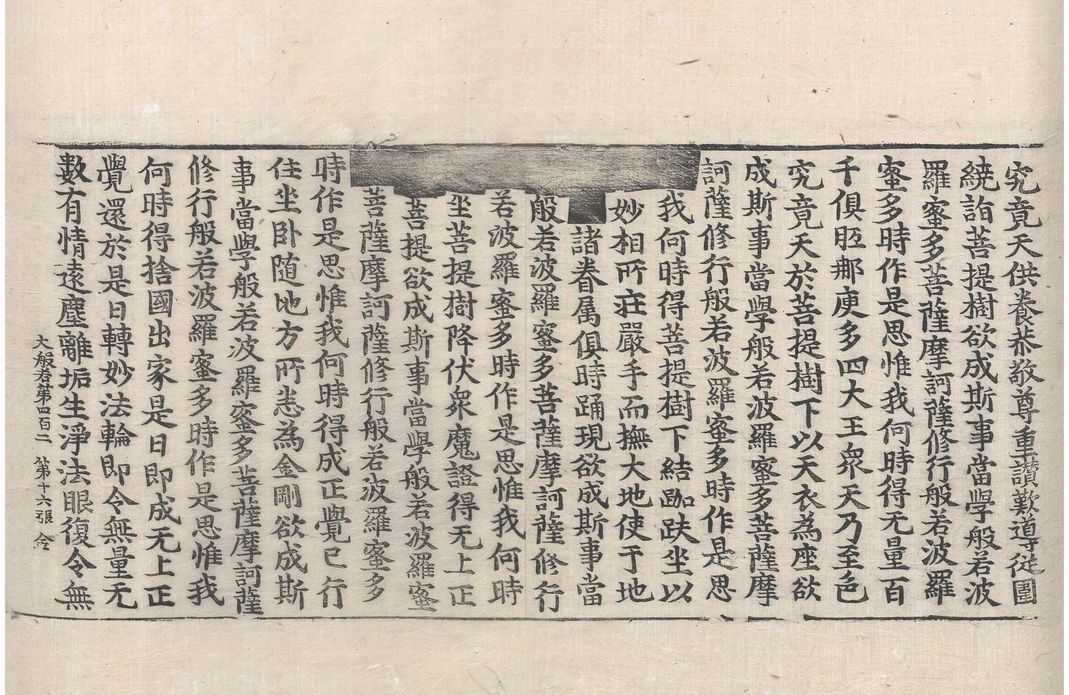 究竟天供養恭敬尊重讚歎導從圍
繞詣菩提樹欲成斯事當學般若波
羅蜜多菩薩摩訶薩修行般若波羅
蜜多時作是思惟我何時得无量百
千俱胝那庾多四大王衆天乃至色
究竟天於菩提樹下以天衣為座欲
成斯事當學般若波羅蜜多菩薩摩
訶薩修行般若波羅蜜多時作是思
我何時得菩提樹下結跏趺坐以
妙相所莊嚴手而撫大地使于地
諸眷属俱時踊現欲成斯事當
般若波羅蜜多菩薩摩訶薩修行
若波羅蜜多時作是思惟我何時
坐菩提樹降伏衆魔證得无上正
菩提欲成斯事當學般若波羅蜜
菩薩摩訶薩修行般若波羅蜜多
時作是思惟我何時得成正覺已行
住坐卧随地方所悉為金剛欲成斯
事當學般若波羅蜜多菩薩摩訶薩
修行般若波羅蜜多時作是思惟我
何時得捨國出家是日即成无上正
覺還於是日轉妙法輪即令無量无
數有情遠塵離垢生淨法眼復令無
大般若第四百二 第十六張